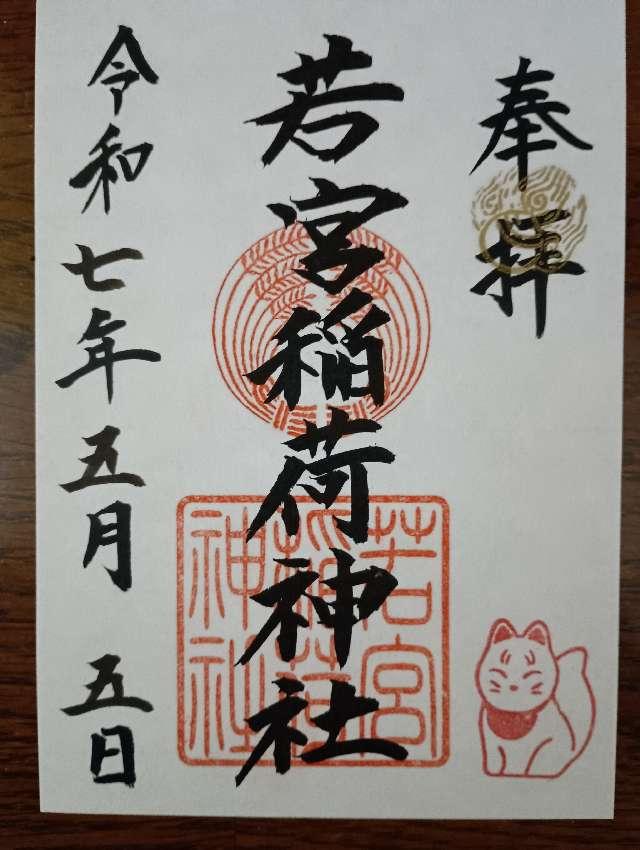 奉拝
若宮稲荷神社
若宮
稲荷
神社
令和七年五月五日